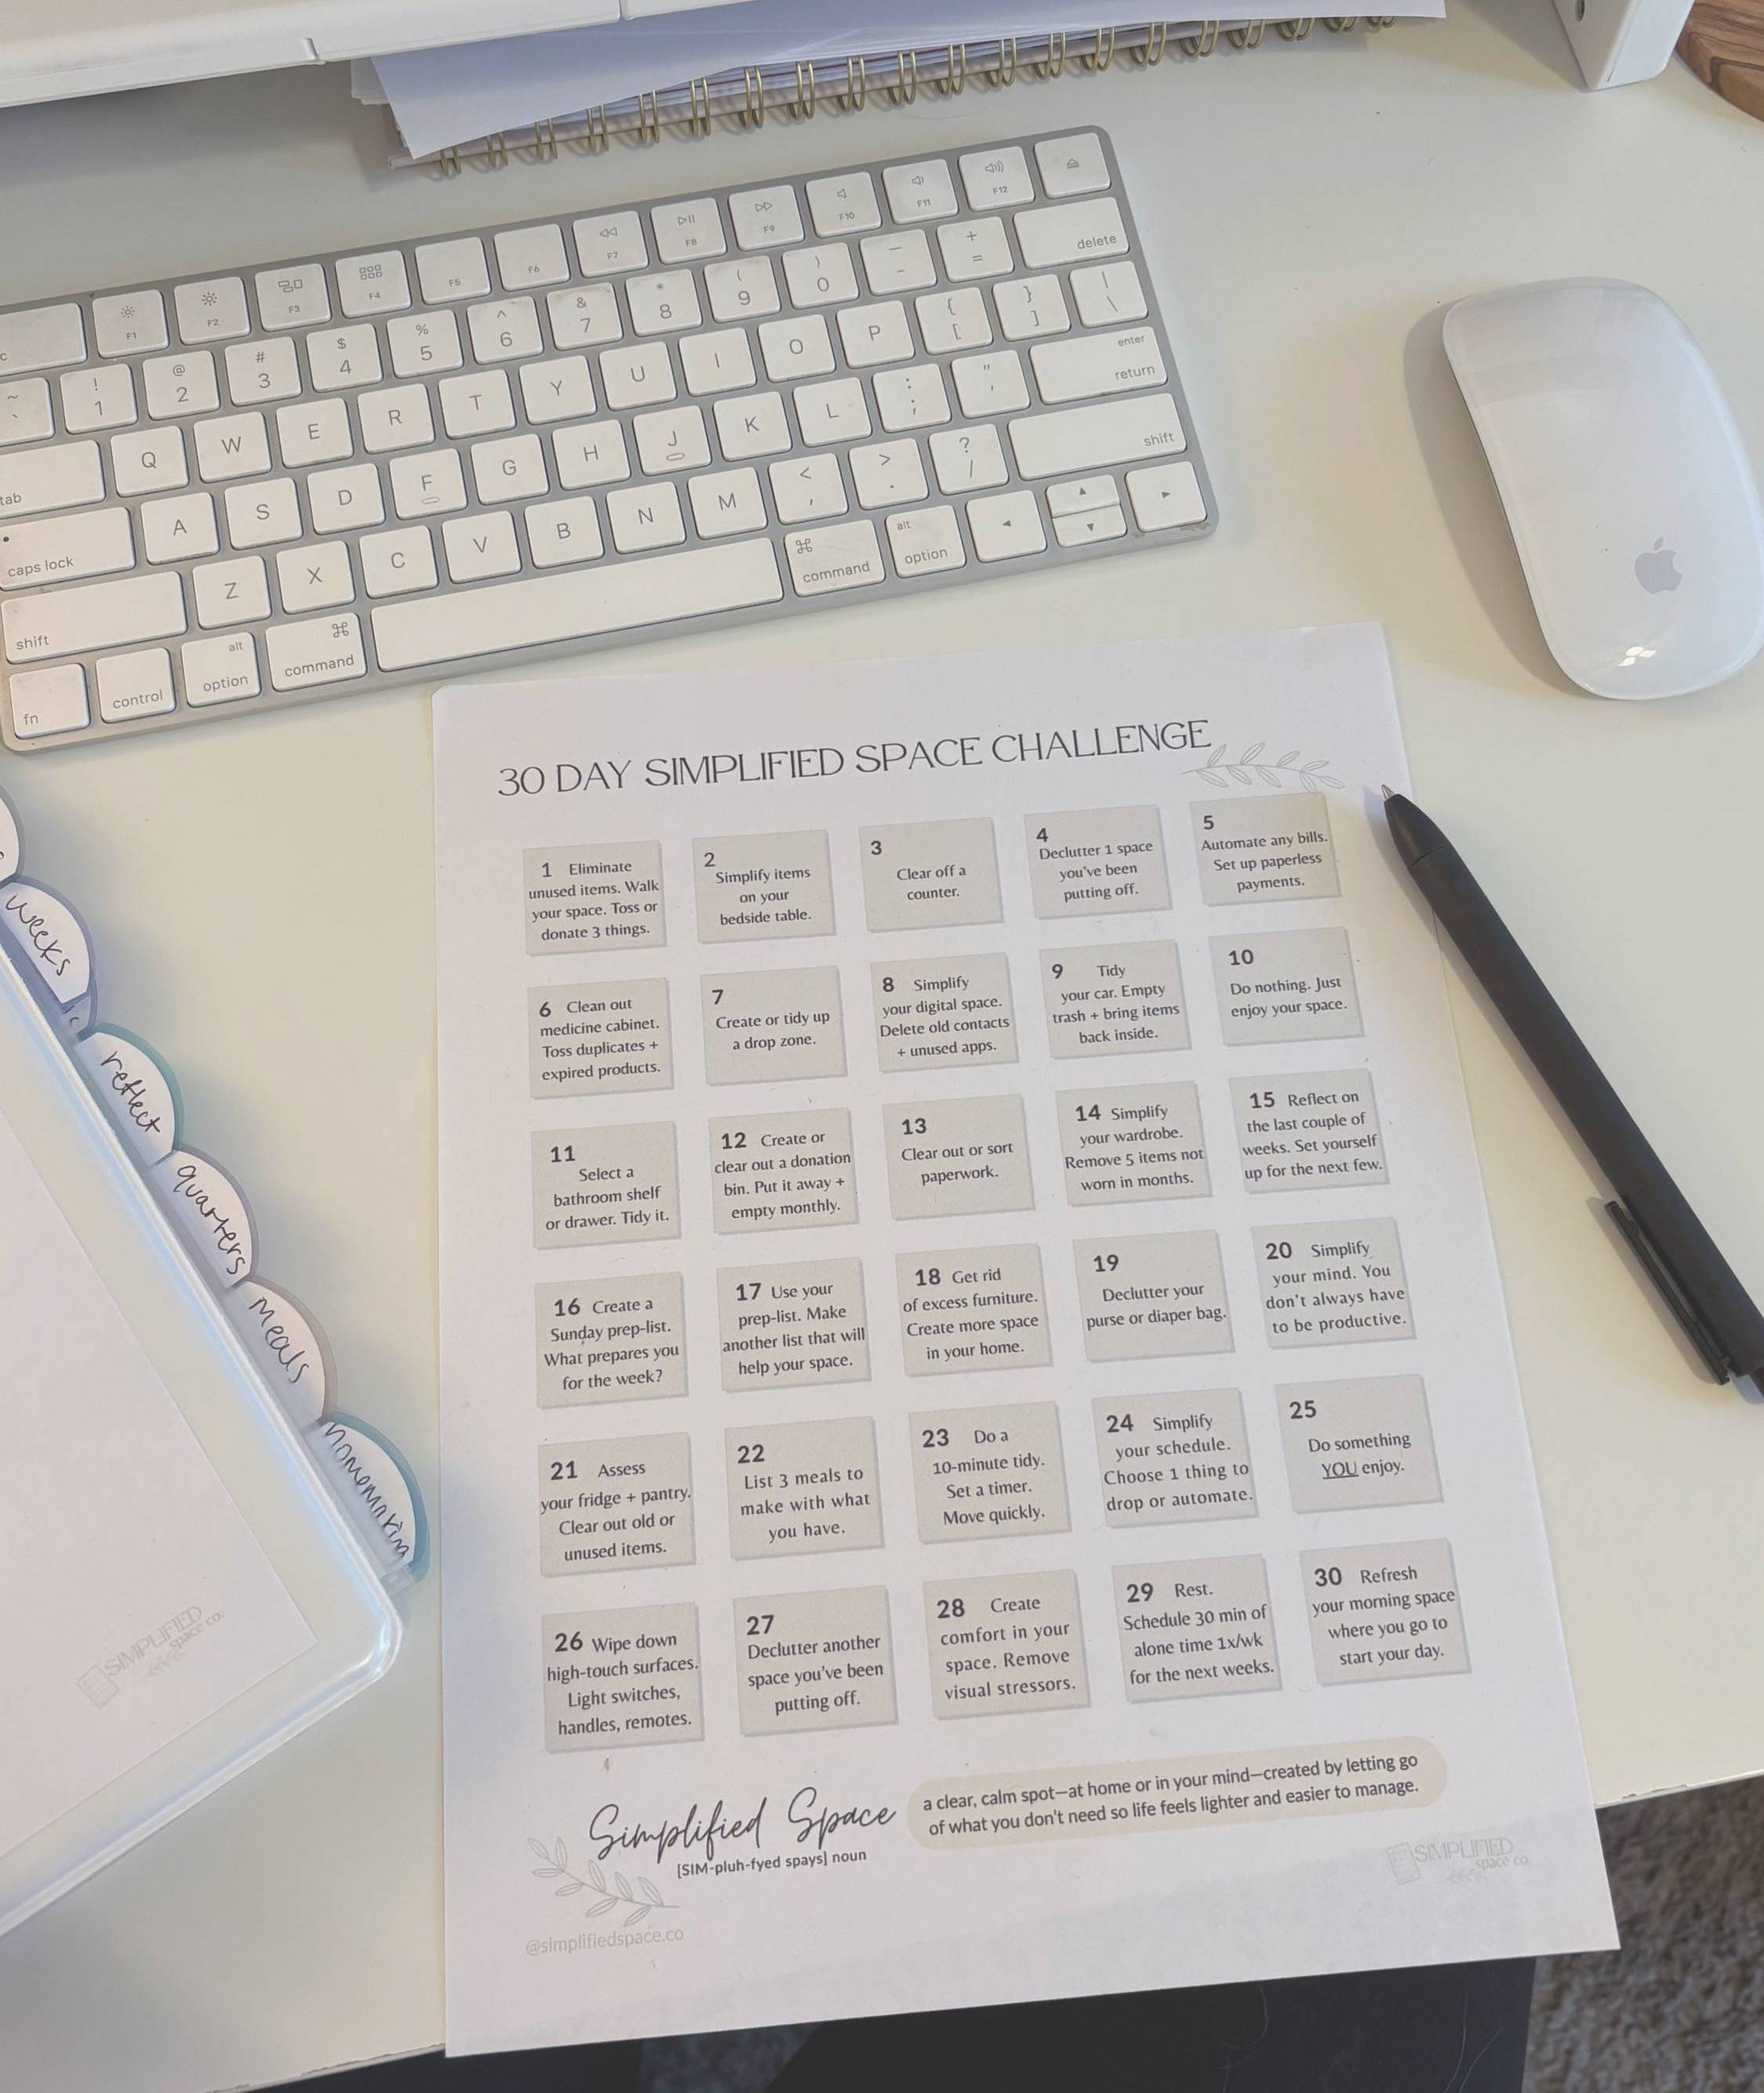 F1
F2
F3
F4
F5
F6
F7
F8
F9
F10
F11
F12
~ `
! 1
@ 2
# 3
$ 4
% 5
^ 6
& 7
* 8
( 9
) 0
_ -
+ =
delete
tab
Q W E R T Y U I O P { [ } ] | \
caps lock
A S D F G H J K L : ; " '
enter
return
shift
Z X C V B N M < , > . ? /
shift
fn
control
alt
option
command
command
alt
option
30 DAY SIMPLIFIED SPACE CHALLENGE
1 Eliminate
unused items. Walk
your space. Toss or
donate 3 things.
2
Simplify items
on your
bedside table.
3
Clear off a
counter.
4
Declutter 1 space
you've been
putting off.
5
Automate any bills.
Set up paperless
payments.
6 Clean out
medicine cabinet.
Toss duplicates +
expired products.
7
Create or tidy up
a drop zone.
8 Simplify
your digital space.
Delete old contacts
+ unused apps.
9 Tidy
your car. Empty
trash + bring items
back inside.
10
Do nothing. Just
enjoy your space.
11
Select a
bathroom shelf
or drawer. Tidy it.
12 Create or
clear out a donation
bin. Put it away +
empty monthly.
13
Clear out or sort
paperwork.
14 Simplify
your wardrobe.
Remove 5 items not
worn in months.
15 Reflect on
the last couple of
weeks. Set yourself
up for the next few.
16 Create a
Sunday prep-list.
What prepares you
for the week?
17 Use your
prep-list. Make
another list that will
help your space.
18 Get rid
of excess furniture.
Create more space
in your home.
19
Declutter your
purse or diaper bag.
20 Simplify
your mind. You
don't always have
to be productive.
21 Assess
your fridge + pantry.
Clear out old or
unused items.
22
List 3 meals to
make with what
you have.
23 Do a
10-minute tidy.
Set a timer.
Move quickly.
24 Simplify
your schedule.
Choose 1 thing to
drop or automate.
25
Do something
YOU enjoy.
26 Wipe down
high-touch surfaces.
Light switches,
handles, remotes.
27
Declutter another
space you've been
putting off.
28 Create
comfort in your
space. Remove
visual stressors.
29 Rest.
Schedule 30 min of
alone time 1x/wk
for the next weeks.
30 Refresh
your morning space
where you go to
start your day.
Simplified Space
[SIM-pluh-fyed spays] noun
a clear, calm spot—at home or in your mind—created by letting go
of what you don't need so life feels lighter and easier to manage.
@simplifiedspace.co
SIMPLIFIED
space co.
weeks
reflect
quarters
meals
SIMPLIFIED
space co.